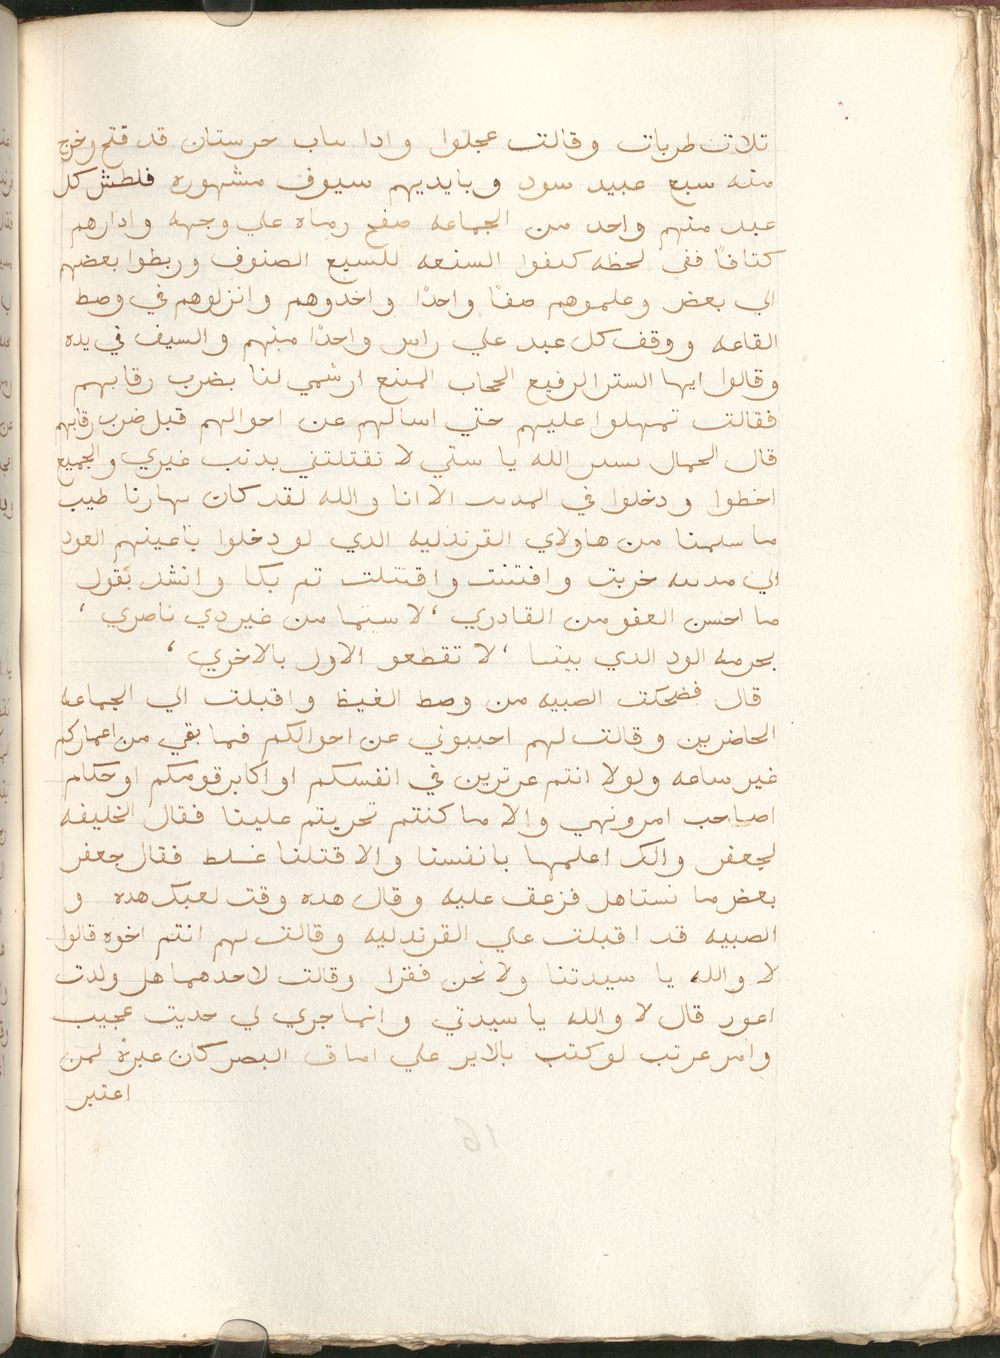 تلات طربات وقالت عجلوا وادا بباب حرستان قد فتح وخرج
منه سبع عبيد سود وبايديهم سيوف مشهوره فلطش كل
عبد منهم واحد من الجماعه صفح رماه علي وجهه وادارهم
كتافاً ففي لحظه كتفوا السبعه للسبع الضنوف وربطوا بعضهم
الي بعض وعلموهم صفاً واحدًا واخدوهم وانزلوهم في وصط
القاعه ووقف كل عبد علي راس واحدًا منهم والسيف في يده
وقالوا ايها الستر الرفيع الحجاب المنبع ارشمي لنا بضرب رقابهم
فقالت تمهلوا عليهم حتي اسالهم عن احوالهم قبل ضرب رقابهم
قال الحمال بستر الله يا ستي لا تقتلتني بدنب غيري والجميع
اخطوا ودخلوا في الدنب الا انا والله لقد كان نهارنا طيب
ما سلمنا من هاولاي القرندليه الدي لو دخلوا باعينهم العود
الي مدينه خربت وافتنت واقتتلت تم بكا وانشد يقول
ما احسن العفو من القادري ، لا سيّما من غير دي ناصري ،
بحرمه الود الدي بيننا ، لا تقطعو الاول بالاخري ،
قال فضحكت الصبيه من وصط الغيظ واقبلت الي الجماعه
الحاضرين وقالت لهم اخبروني عن احوالكم فما بقي من اعماركم
غير ساعه ولولا انتم عزيزين في انفسكم او اكابر قومكم او حكام
اصاحب امر ونهي والا ما كنتم تجريتم علينا فقال الخليفه
لجعفر والك اعلمها بانفسنا والا قتلنا غلط فقال جعفر
بعض ما نستاهل فزعق عليه وقال هده وقت لعبك هده و
الصبيه قد اقبلت علي القرندليه وقالت لهم انتم اخوه قالوا
لا والله يا سيدتنا ولا نحن فقرا وقالت لاحدهما هل ولدت
اعور قال لا والله يا سيدتي وانما جري لي حديت عجيب
وامر غريب لو كتب بالابر علي اماق البصر كان عبرةً لمن
اعتبر
16